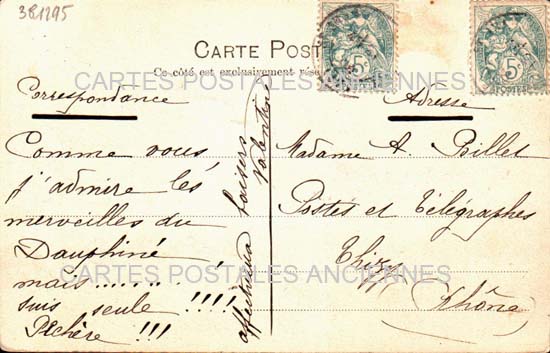 381295
CARTE POST
Ce côté est exclusivement rése
CARTES POSTALES ANCIENNES
Correspondance
Adresse
Comme vous,
j'admire les
merveilles du
Dauphiné
mais.......
suis seule !!!!
Péchère !!!
affectueux baisers
Valentine
Madame A. Billet
Postes et Télégraphes
Thizy
(Rhône)
CARTES POSTALES ANCIENNES
5c
5c